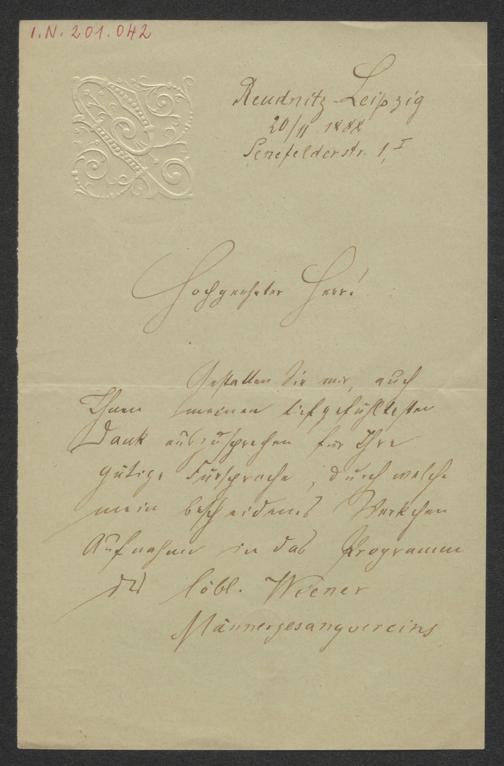 I.N. 201.042
Reudnitz-Leipzig
20/11 1888
Senefelderstr. 1, I
Hochgeehrter Herr!
Gestatten Sie mir, auch
Ihnen meinen tiefgefühltesten
Dank auszusprechen für Ihre
gütige Fürsprache, durch welche
mein bescheidenes Werkchen
Aufnahme in das Programm
des löbl. Wiener
Männergesangvereins